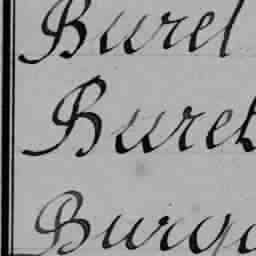 Burel
Buret
Burga